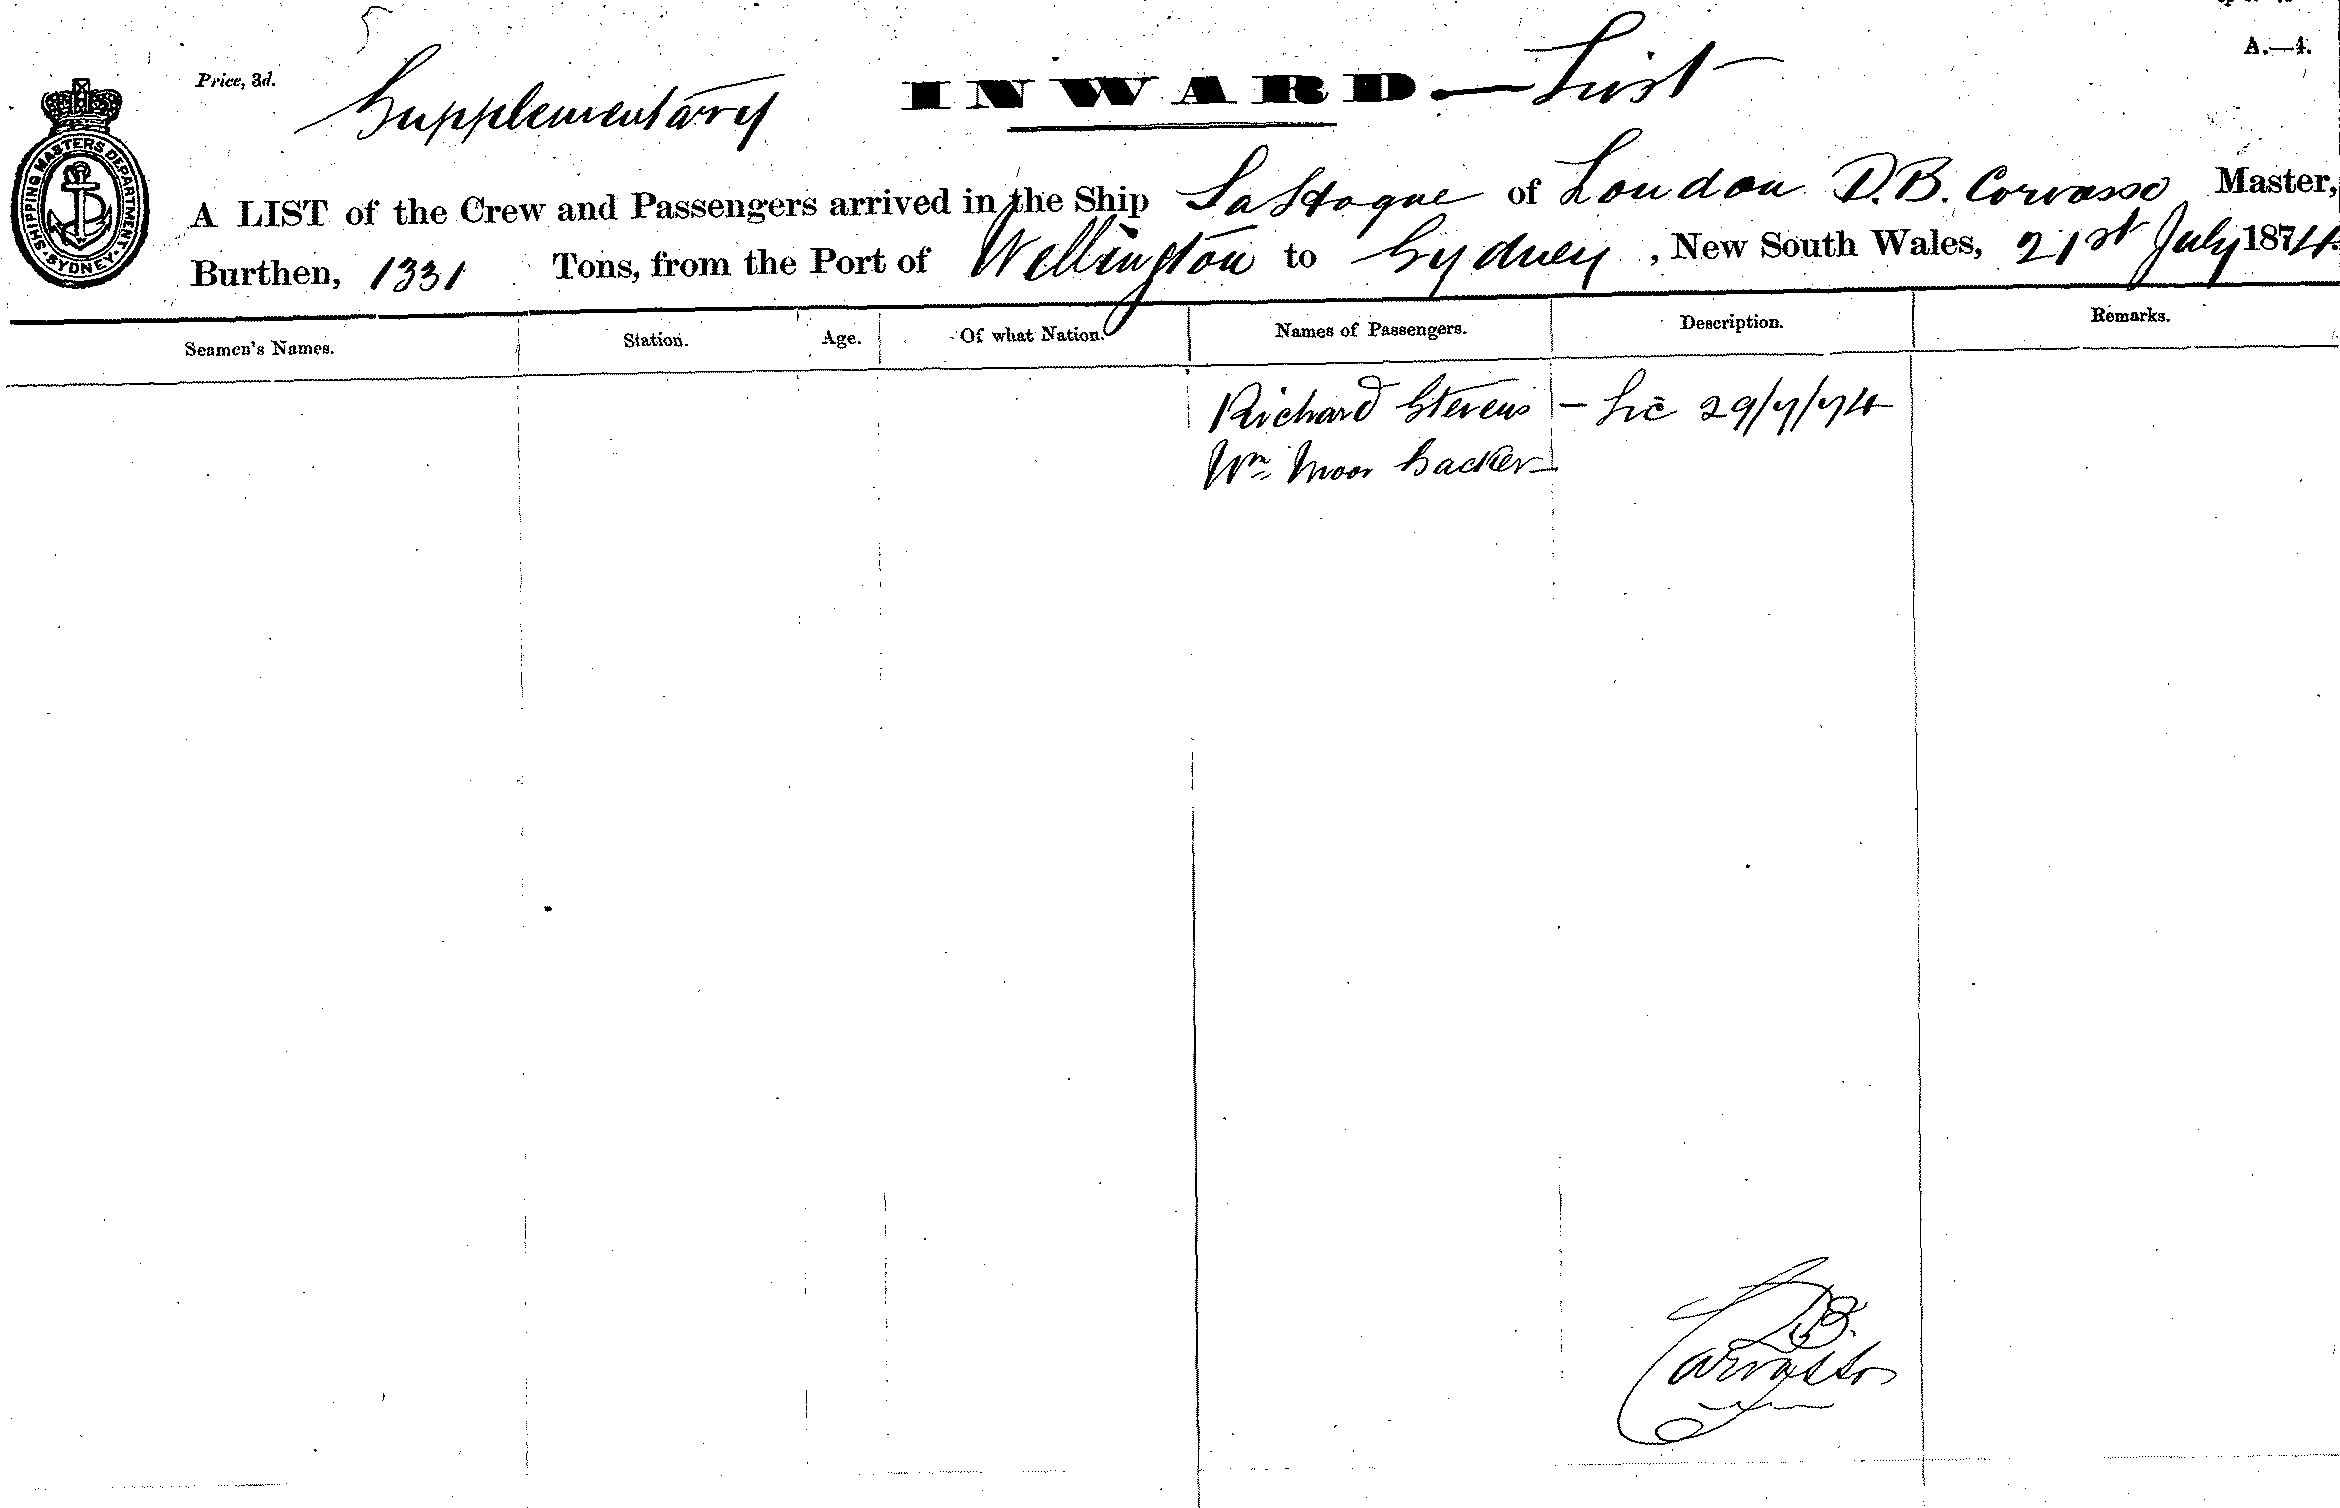 A.—4.
Price, 3d.
Supplementary INWARD — List
SHIPPING MASTERS DEPARTMENT SYDNEY
A LIST of the Crew and Passengers arrived in the Ship La Hogue of London D.B. Corvasso Master,
Burthen, 1331 Tons, from the Port of Wellington to Sydney, New South Wales, 21st July 1874.
Seamen's Names. Station. Age. Of what Nation. Names of Passengers. Description. Remarks.
Richard Stevens – Lic 29/7/74
Wm Moor Sacker
D B.
Carvasso